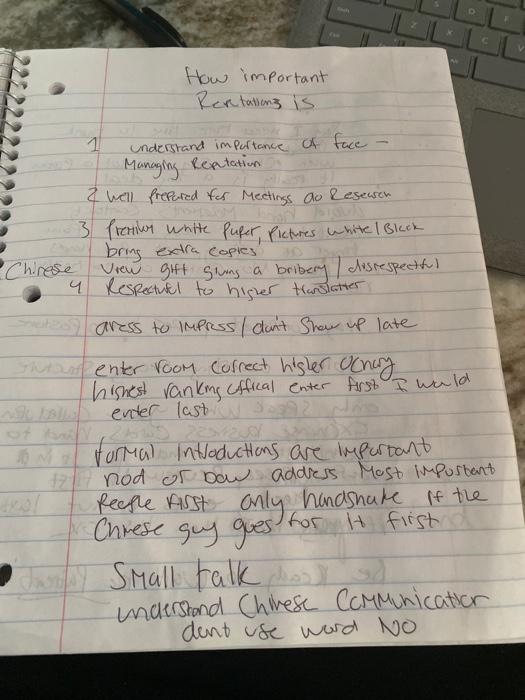 How important
Rentations is
1 understand importance of face -
Managing Reputation
2 well prepared for Meetings do Research
3 premium white Paper, Pictures white/Black
bring extra copies
Chinese view gift givns a bribery / disrespectful
4 Respectful to higher translatter
dress to IMPRSS / don't show up late
enter room correct higher
highest ranking offical enter first I would
enter last
formal Introductions are Important
nod or bow address Most Important
People First only handshake If the
Chinese guy goes for It first
Small talk
understand Chinese Communication
dont use word NO